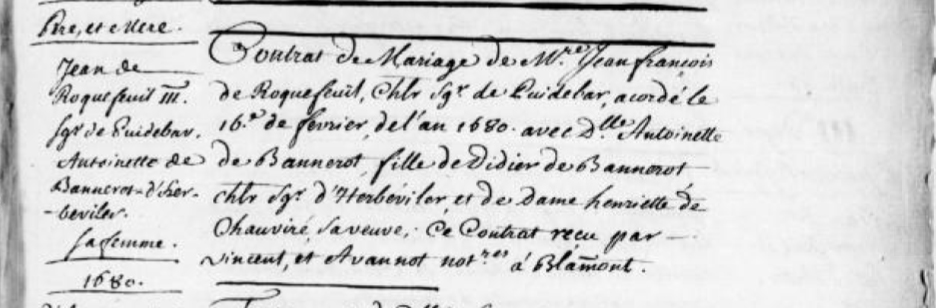 Pere, et Mere.
Jean de
Roquefeuil III.
sgr de Puidebar.
Antoinette de
Bannerot-d'Her-
-beviler.
sa femme.
1680.
Contrat de Mariage de Mre. Jean françois
de Roquefeuil, Chlr sgr. de Puidebar, acordé le
16.e de fevrier de l'an 1680. avec Dlle Antoinette
de Bannerot, fille de Didier de Bannerot
chlr sgr. d'Herbéviler, et de Dame henriette de
Chauviré, sa veuve, Ce Contrat reçu par
Vincent, et Avannot not.res á Blamont.